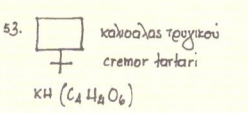 53.
καλιοάλας τρυγικού
cremor tartari
KH (C4H4O6)